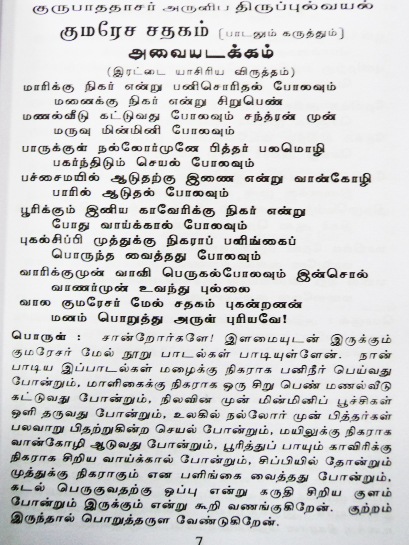 குருபாததாசர் அருளிய திருப்புல்வயல்
குமரேச சதகம் [பாடலும் கருத்தும்]
அவையடக்கம்
(இரட்டை யாசிரிய விருத்தம்)
மாரிக்கு நிகர் என்று பனிசொரிதல் போலவும்
மனைக்கு நிகர் என்று சிறுபெண்
மணல்வீடு கட்டுவது போலவும் சந்த்ரன் முன்
மருவு மின்மினி போலவும்
பாருக்குள் நல்லோர்முனே பித்தர் பலமொழி
பகர்ந்திடும் செயல் போலவும்
பச்சைமயில் ஆடுதற்கு இணை என்று வான்கோழி
பாரில் ஆடுதல் போலவும்
பூரிக்கும் இனிய காவேரிக்கு நிகர் என்று
போது வாய்க்கால் போலவும்
புகல்சிப்பி முத்துக்கு நிகராப் பளிங்கைப்
பொருந்த வைத்தது போலவும்
வாரிக்குமுன் வாவி பெருகல்போலவும் இன்சொல்
வாணர்முன் உவந்து புல்லை
வால குமரேசர் மேல் சதகம் புகன்றனன்
மனம் பொறுத்து அருள் புரியவே!
பொருள் : சான்றோர்களே! இளமையுடன் இருக்கும்
குமரேசர் மேல் நூறு பாடல்கள் பாடியுள்ளேன். நான்
பாடிய இப்பாடல்கள் மழைக்கு நிகராக பனிநீர் பெய்வது
போன்றும், மாளிகைக்கு நிகராக ஒரு சிறு பெண் மணல்வீடு
கட்டுவது போன்றும், நிலவின் முன் மின்மினிப் பூச்சிகள்
ஒளி தருவது போன்றும், உலகில் நல்லோர் முன் பித்தர்கள்
பலவாறு பிதற்றுகின்ற செயல் போன்றும், மயிலுக்கு நிகராக
வான்கோழி ஆடுவது போன்றும், பூரித்துப் பாயும் காவிரிக்கு
நிகராக சிறிய வாய்க்கால் போன்றும், சிப்பியில் தோன்றும்
முத்துக்கு நிகராகும் என பளிங்கை வைத்தது போன்றும்,
கடல் பெருகுவதற்கு ஒப்பு என்று கருதி சிறிய குளம்
போன்றும் இருக்கும் என்று கூறி வணங்குகிறேன். குற்றம்
இருந்தால் பொறுத்தருள வேண்டுகிறேன்.
7